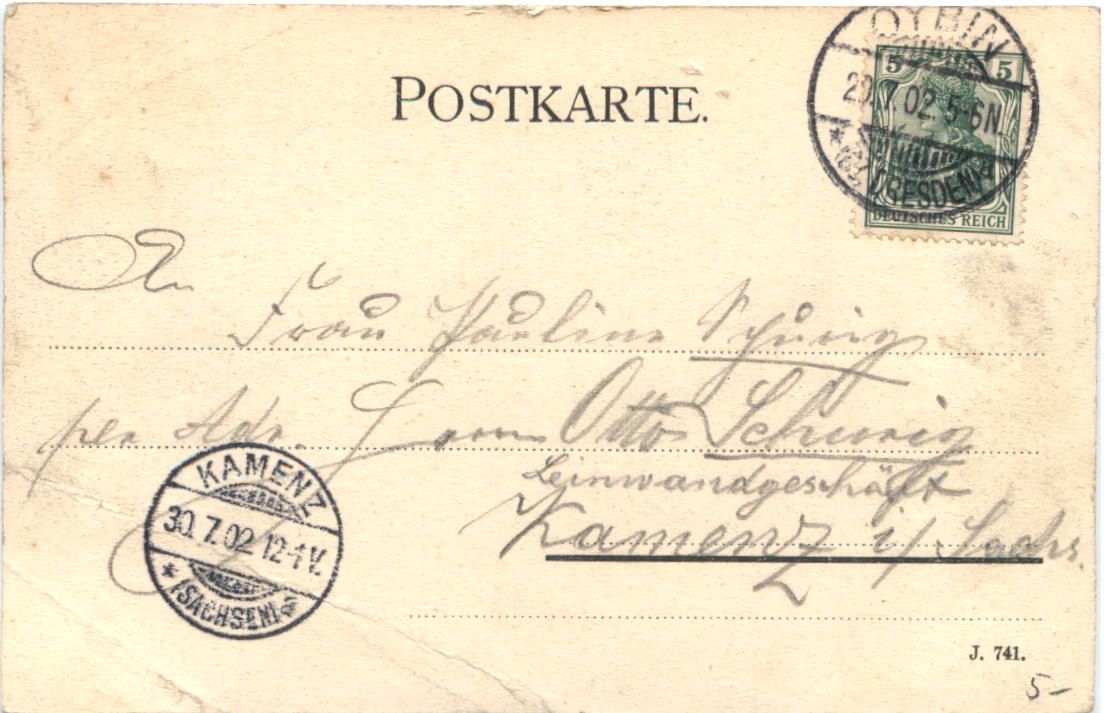 POSTKARTE.
OYBIN
29.7.02. 5-6N.
* (BZ. DRESDEN) a
5 5
DEUTSCHES REICH
An
Frau Pauline Schurig
per Adr. Herrn Otto Schurig
Leinwandgeschäft
Kamenz i/ Sachs.
KAMENZ
30.7.02 12-1V.
* (SACHSEN) a
J. 741.
5-